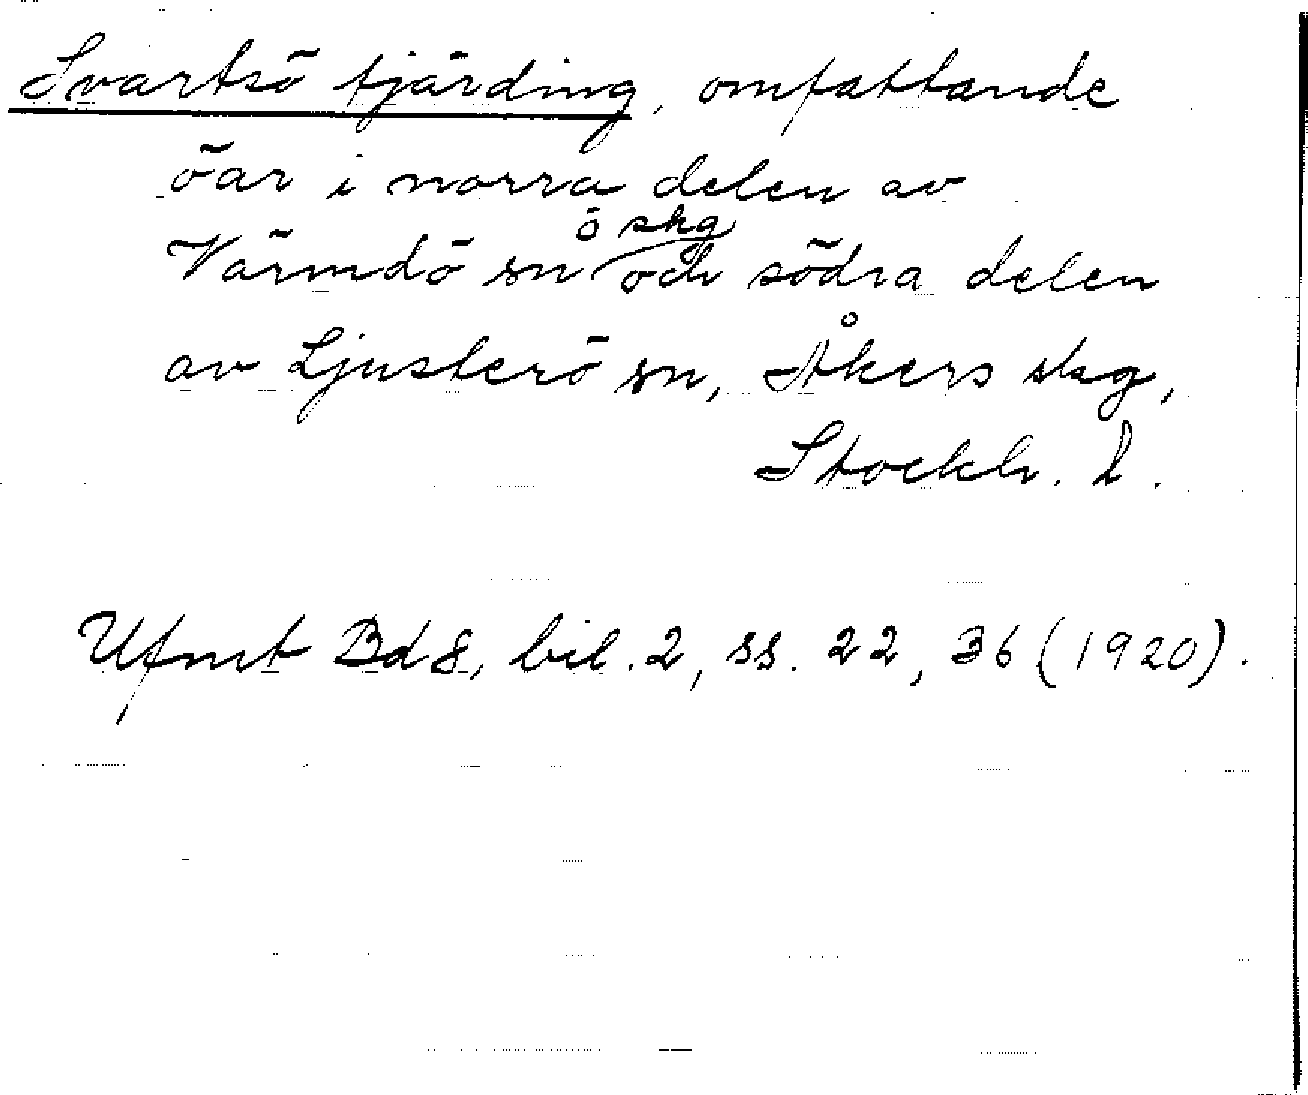 Svartsö fjärding, omfattande
öar i norra delen av
Värmdö sn ö skg och södra delen
av Ljusterö sn, Åkers skg,
Stockh. l.
Ufmt Bd 8, bil. 2, ss. 22, 36 (1920).